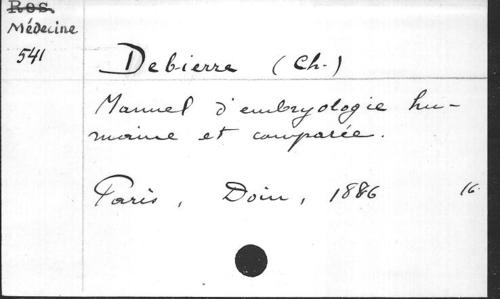 Res.
Médecine
541
Debierre (Ch.)
Manuel d'embryologie hu-
maine et comparée.
Paris, Doin, 1886 16